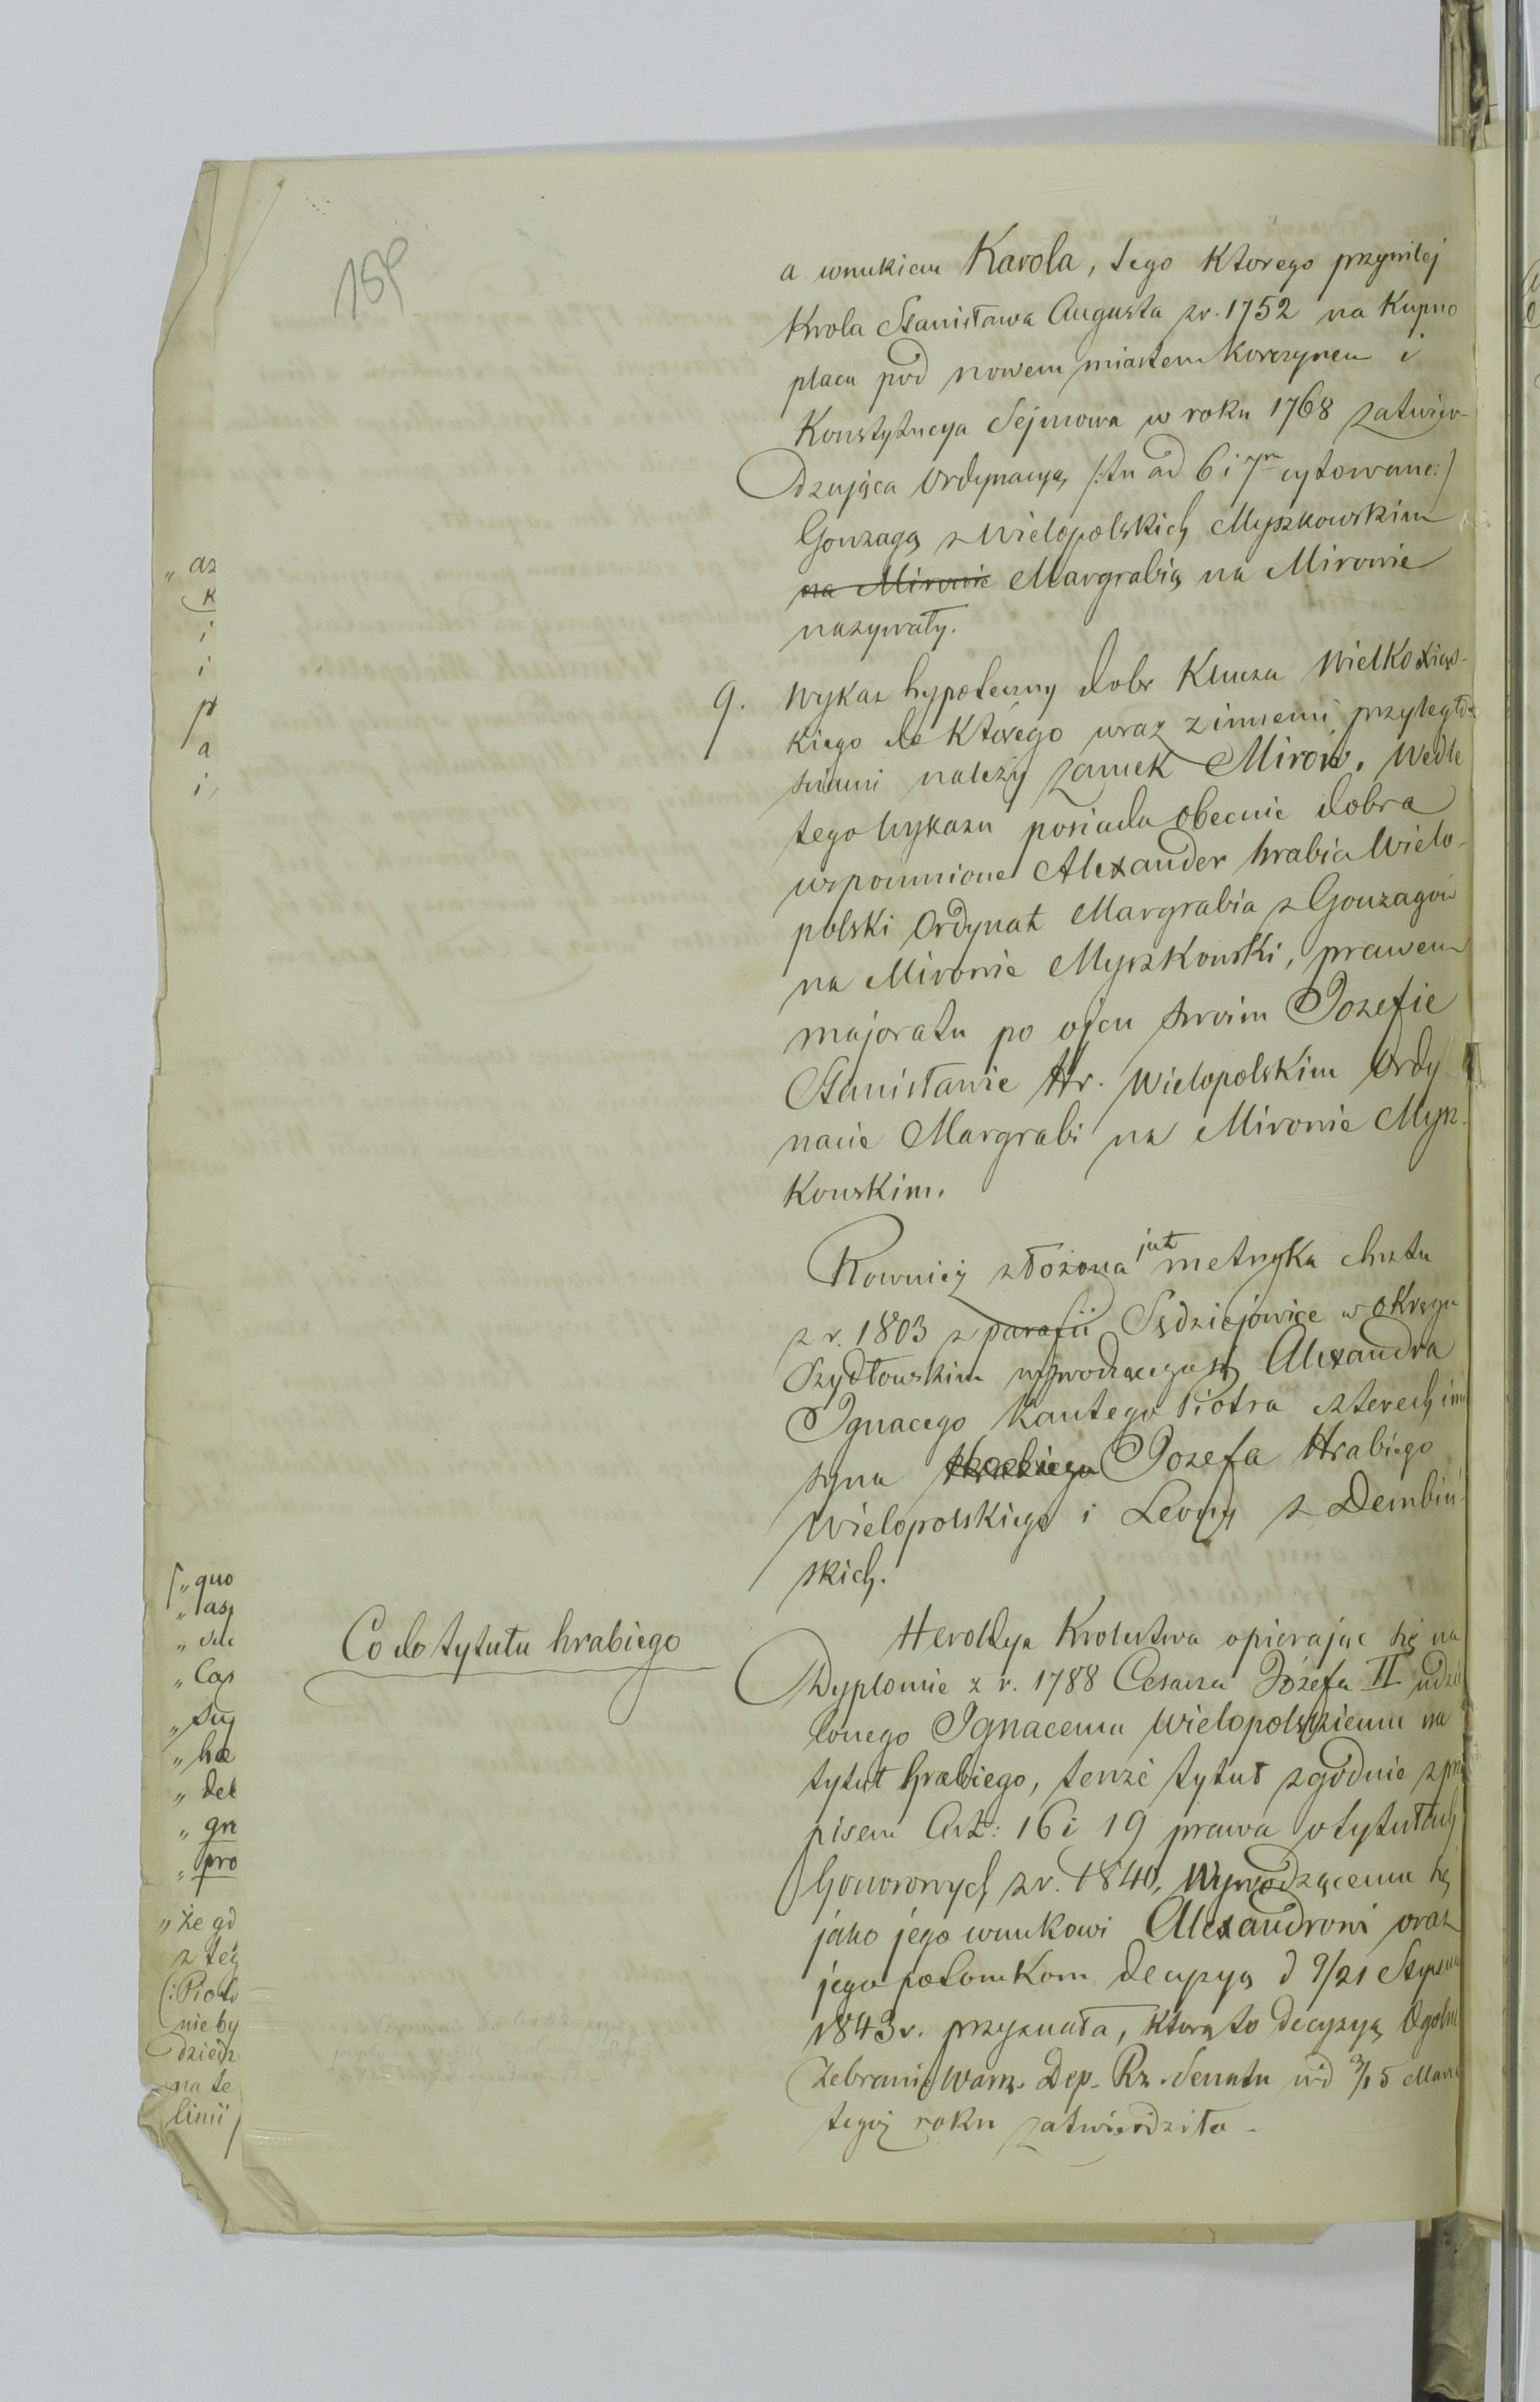 a wnukiem Karola, tego ktorego przywilej
Krola Stanisława Augusta z r. 1752 na Kupno
placu pod nowem miastem Korczynem i
Konstytucya Sejmowa w roku 1768 zatwier-
dzająca Ordynacyą /: tu ad 6 i 7m cytowane :/
Gonzagą z Wielopolskich Myszkowskim
na Mirowie Margrabią na Mirowie
nazywały.
9. Wykaz hypoteczny dobr Klucza Wielko Xiąs-
kiego do którego wraz z innemi przyległo-
sciami należy zamek Mirów. Wedle
tego Wykazu posiada obecnie dobra
wspomnione Alexander hrabia Wielo-
polski Ordynat Margrabia z Gonzagów
na Mirowie Myszkowski, prawem
majoratu po ojcu swoim Jozefie
Stanisławie Hr. Wielopolskim Ordy
nacie Margrabi na Mirowie Mysz-
kowskim.
Rownież złożona jest metryka chrztu
z r. 1803 z parafii Sędziejowice w Okręgu
Szydłowskim wywodzącego się Alexandra
Ignacego Kantego Piotra czterech imion
syna Hrabiego Jozefa Hrabiego
Wielopolskiego i Leony z Dembiń-
skich.
Co do tytułu hrabiego
Heroldya Krolestwa opierając się na
Dyplomie z r. 1788 Cesarza Józefa II udzie
lonego Ignacemu Wielopolskiemu na
tytuł hrabiego, tenże tytuł zgodnie z prze
pisem Art: 16 i 19 prawa o tytułach
honorowych z r. 1840, Wywodzącemu się
jako jego wnukowi Alexandrowi oraz
jego potomkom decyzyą d 9/21 Stycznia
1843 r. przyznała, którą to decyzyą Ogolne
Zebranie Warsz. Dep. Rz. Senatu w d 3/15 Marca
tegoż roku zatwierdziło.
„ az
k
i
i
pt
a
i
„ quo
„ las
„ ode
„ Cas
„ Suj
„ hæ
„ deb
„ gn
„ pro
„ że gd
z teg
(: Piotr
nie by
dzied
na te
linii